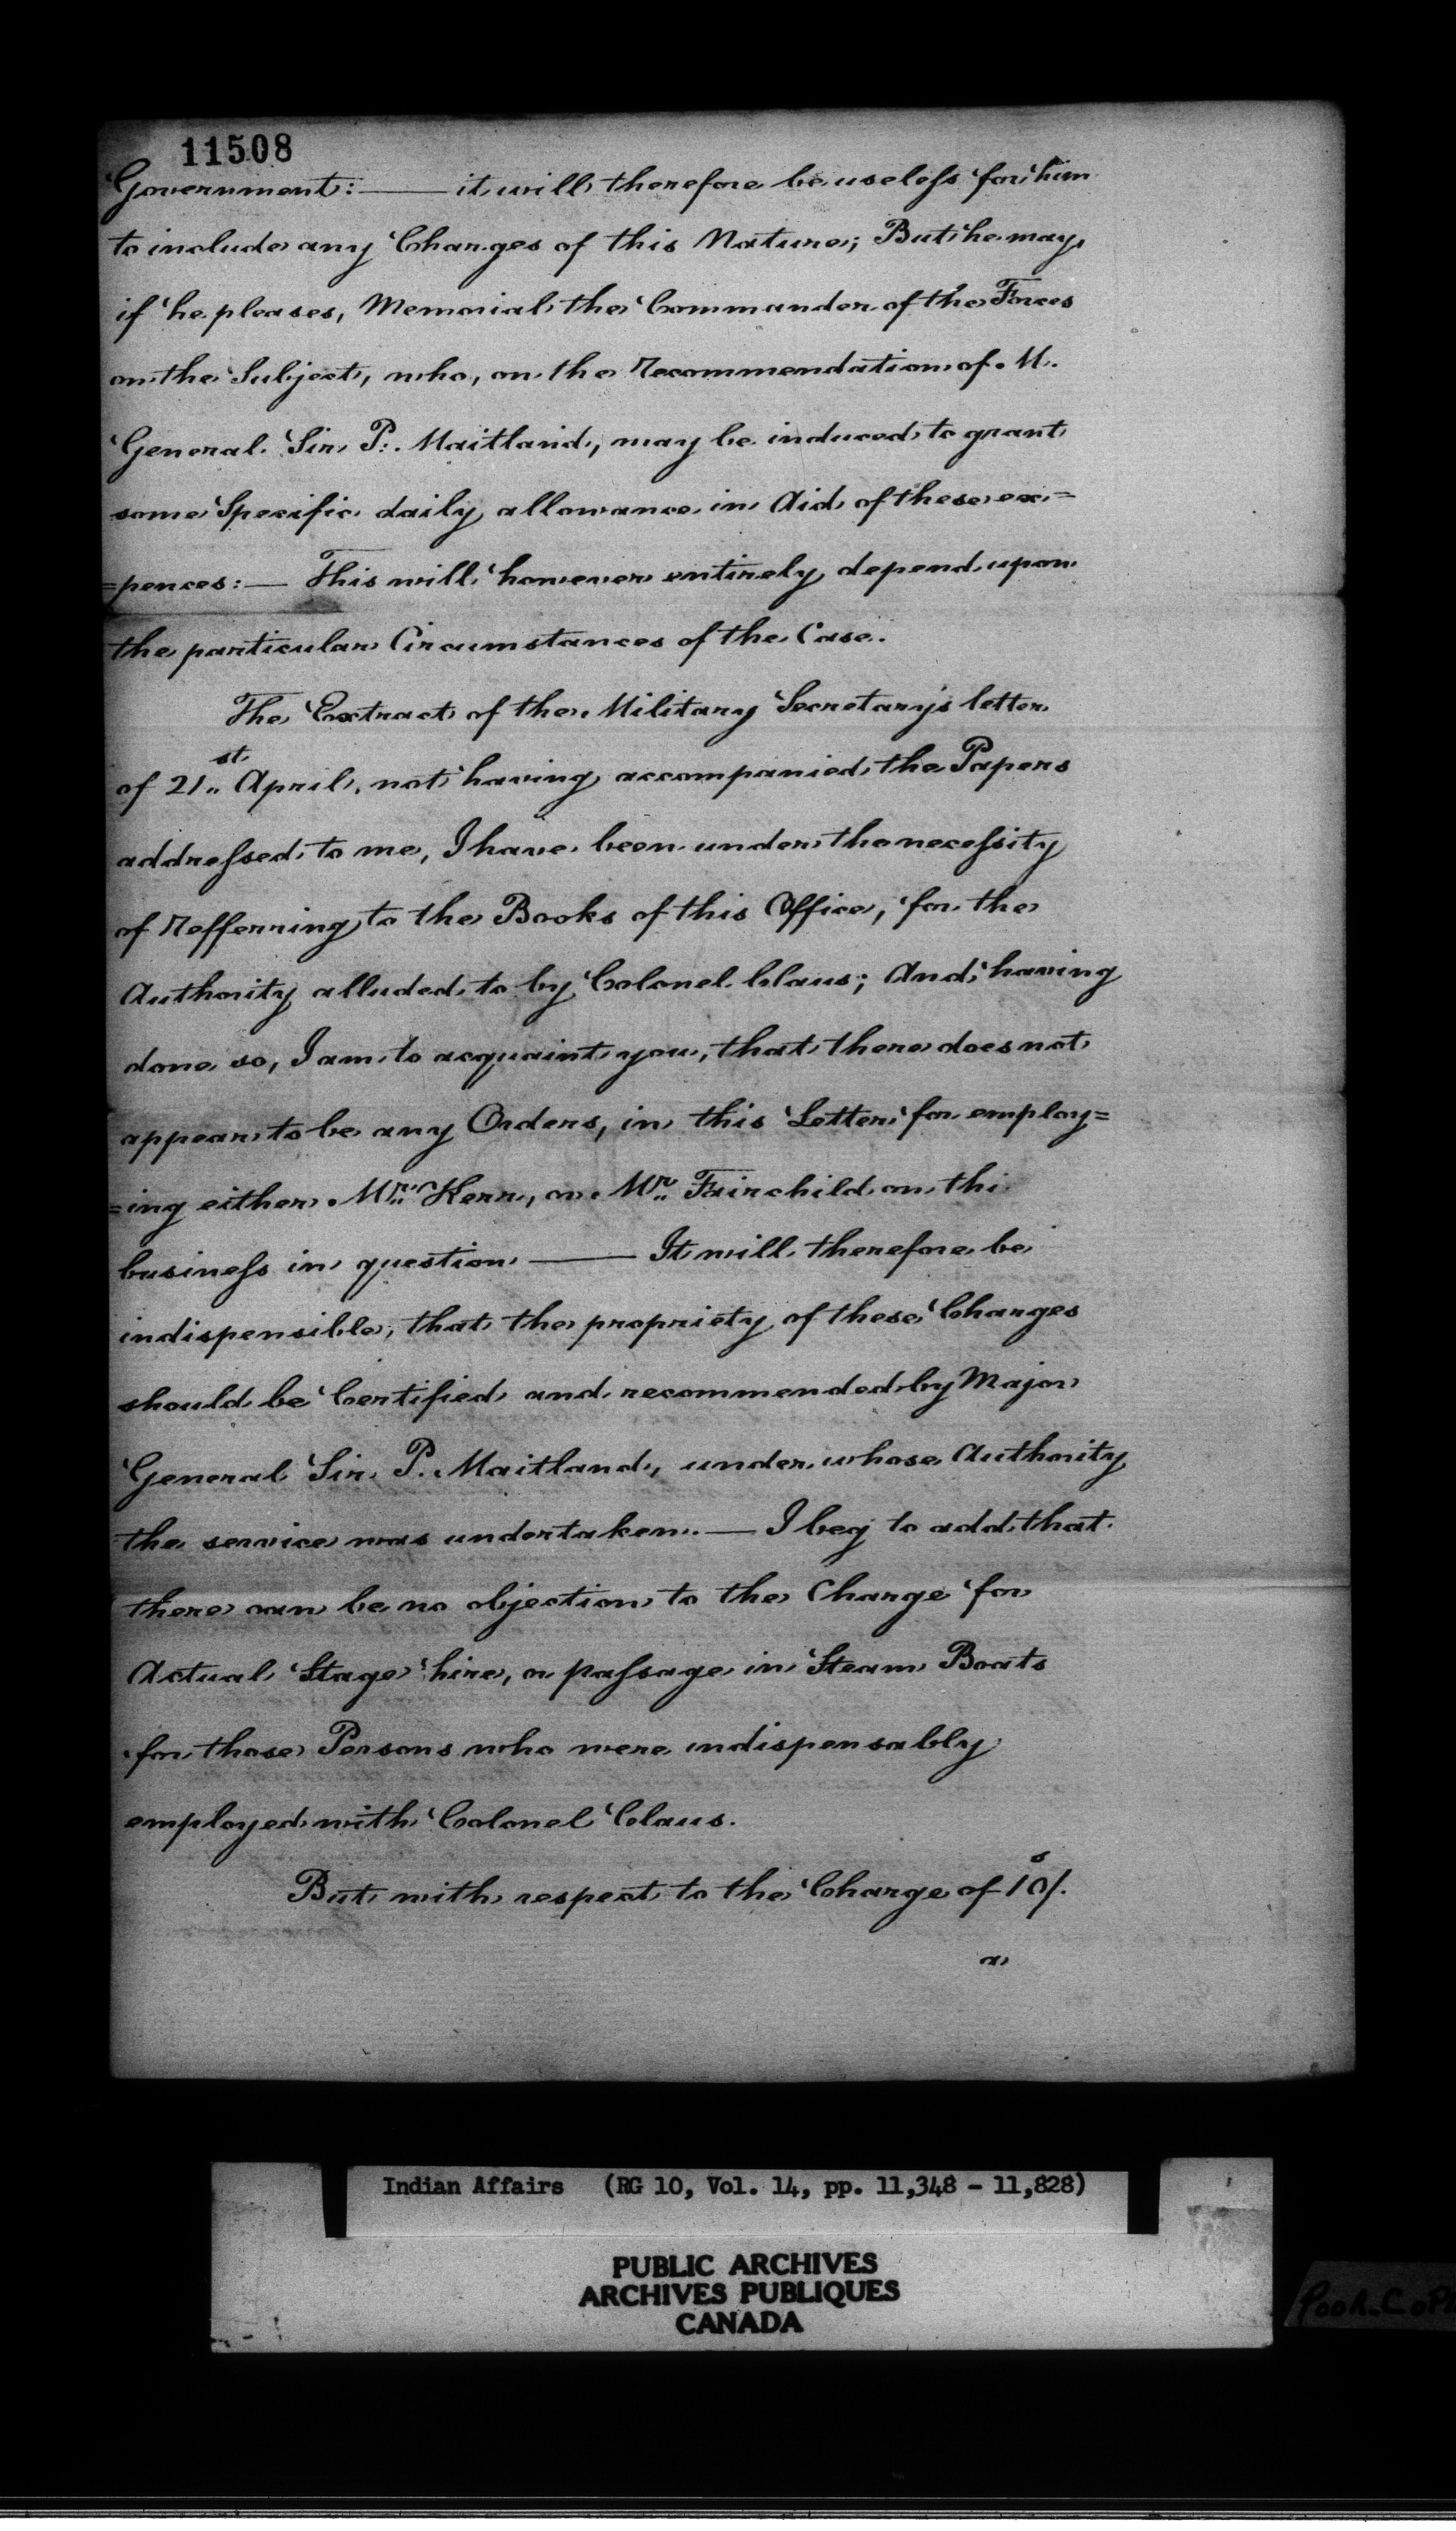 11508
Government:—— it will therefore be useless for him
to include any Charges of this Nature; But he may,
if he pleases, Memorial the Commander of the Forces
on the Subject, who, on the Recommendation of M.
General Sir P. Maitland, may be induced to grant
some Specific daily allowance in Aid of these ex=
=pences:— This will however entirely depend upon
the particular Circumstances of the Case.
The Extract of the Military Secretary's letter
of 21st April, not having accompanied the Papers
addressed to me, I have been under the necessity
of Refferring to the Books of this Office, for the
Authority alluded to by Colonel Claus; And having
done so, I am to acquaint you, that there does not
appear to be any Orders, in this Letter for employ=
=ing either Mr. Kerr, or Mr. Fairchild on the
business in question —— It will therefore be
indispensible, that the propriety of these Charges
should be Certified and recommended by Major
General Sir P. Maitland, under whose Authority
the service was undertaken.— I beg to add that
there can be no objection to the Charge for
Actual Stage hire, or passage in Steam Boats
for those Persons who were indispensably
employed with Colonel Claus.
But with respect to the Charge of 10s/.
a
Indian Affairs (RG 10, Vol. 14, pp. 11,348 - 11,828)
PUBLIC ARCHIVES
ARCHIVES PUBLIQUES
CANADA